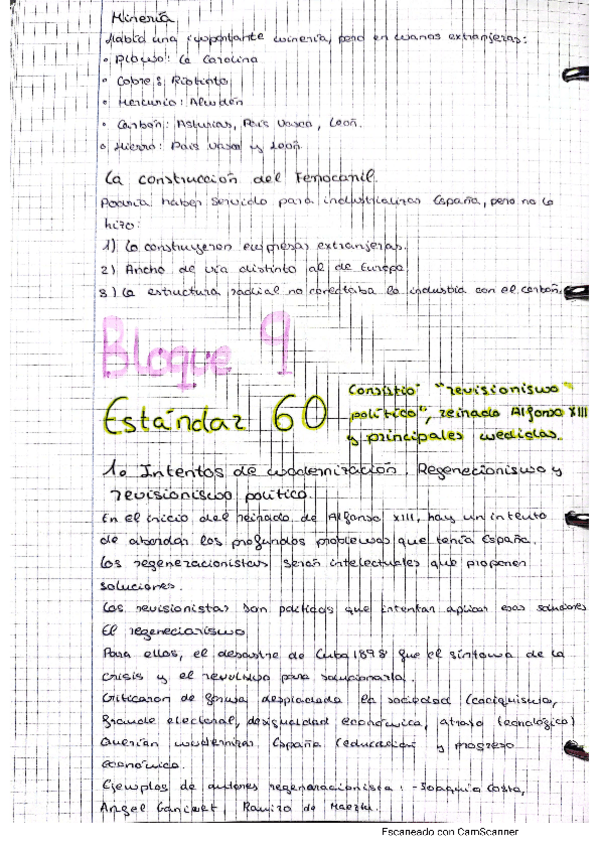 Minería
Había una importante minería, pero en manos extranjeras:
• Plomo: La Carolina
• Cobre: Riotinto
• Mercurio: Almadén
• Carbón: Asturias, País Vasco, León.
• Hierro: País Vasco y León
La construcción del Ferrocarril.
Podría haber servido para industrializar España, pero no lo
hizo:
1) Lo construyeron empresas extranjeras.
2) Ancho de vía distinto al de Europa
3) La estructura radial no conectaba la industria con el carbón.
Bloque 9
Estándar 60
Consistió "revisionismo
político", reinado Alfonso XIII
y principales medidas.
1. Intentos de modernización. Regenecionismo y
revisionismo político.
En el inicio del reinado de Alfonso XIII, hay un intento
de abordar los profundos problemas que tenía España.
Los regeneracionistas serán intelectuales que proponen
soluciones.
Los revisionistas son políticos que intentan aplicar esas soluciones
El regeneciarismo
Para ellos, el desastre de Cuba 1898 fue el síntoma de la
crisis y el revulsivo para solucionarla.
Criticaron de forma despiadada la sociedad (caciquismo,
fraude electoral, desigualdad económica, atraso tecnológico)
Querían modernizar España (educación y progreso
económico.
Ejemplos de autores regeneracionista: - Joaquín Costa,
Angel Ganivet, Ramiro de Maeztu.
Escaneado con CamScanner